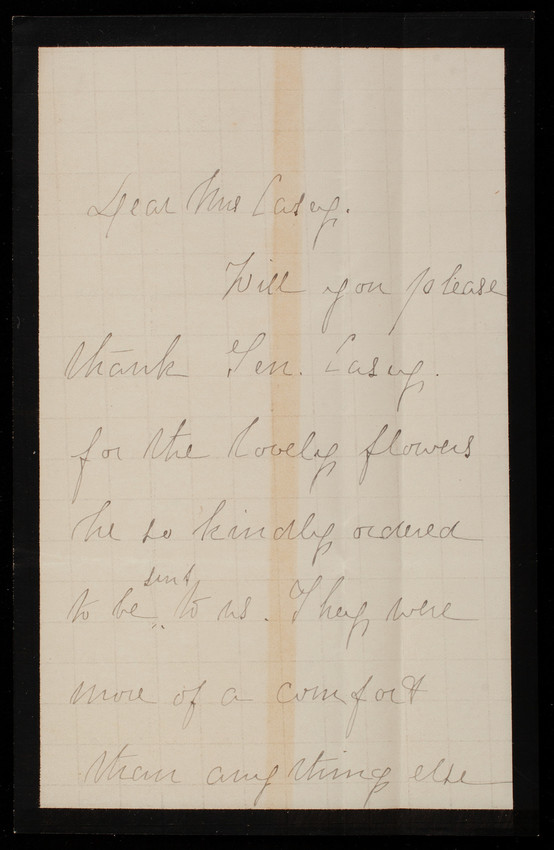 Dear Mrs Casey.
Will you please
thank Gen. Casey.
for the lovely flowers
he so kindly ordered
sent
to be to us. They were
more of a comfort
than any thing else